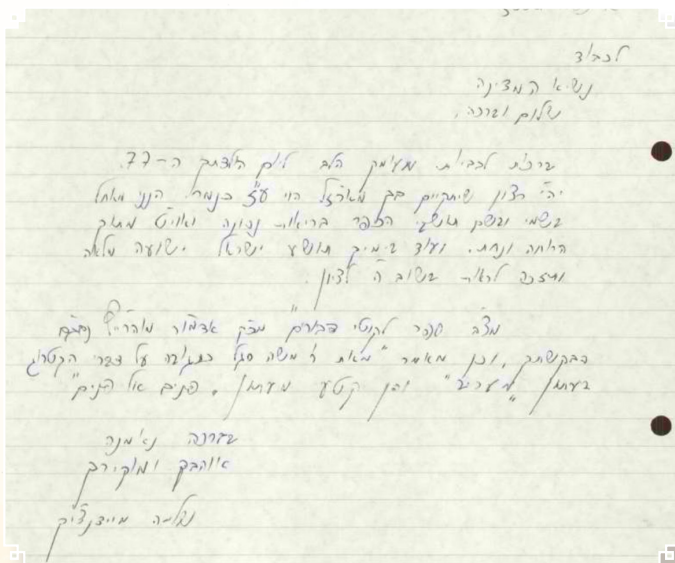 לכבוד
נשיא המדינה
שלום וברכה,
ברכות לבביות מעומק הלב ליום הולדתך ה-77.
יה"ר רצון שיתקיים בך מארז"ל הוי עז כנמר. הנני מאחל
בשמי ובשם אנשי הכפר בריאות נכונה ואויט מתוך
הרווחה ונחת. ועוד בימיך תושע ישראל ישועה מלאה
ותזכה לראות בשוב ה' לציון.
מצ"ב ספר לקוטי דבורים מכ"ק אדמו"ר מוהריי"ץ
כבקשתך, וכן מאמר מאת ר' משה סגל כתגובה על דברי הקטרוג
בעתון "מעריב" וכן קטע מעתון "פנים אל פנים"
בברכה נאמנה
אוהבך ומוקירך
שלמה מיידנצ'יק